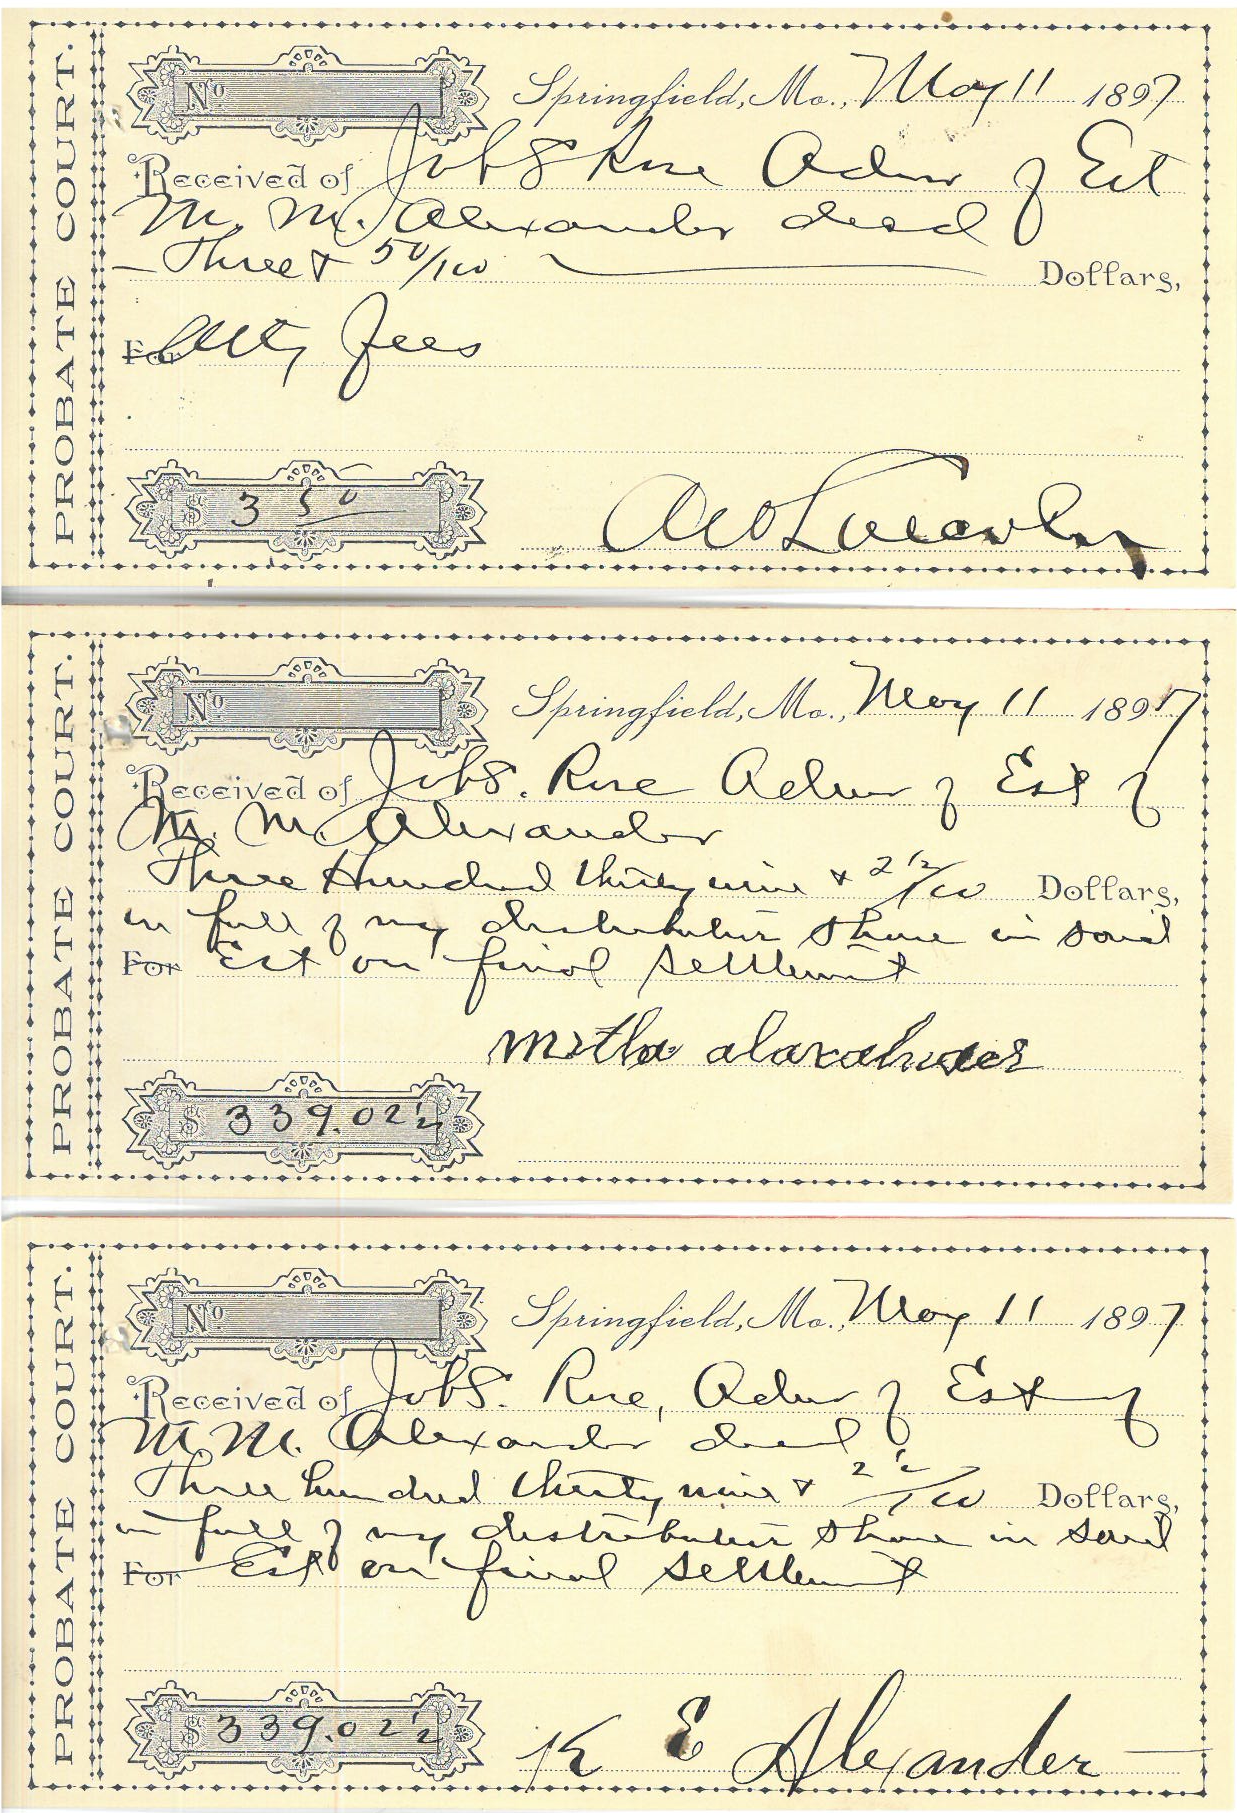 PROBATE COURT.
No
Springfield, Mo., May 11 1897
Received of Job S Rose Admr of Est
M. M. Alexander decd
Three & 50/100 Dollars,
For Atty fees
$ 3 50
PROBATE COURT.
No
Springfield, Mo., May 11 1897
Received of Job S. Rose Admr of Est of
M. M. Alexander
Three Hundred thirty nine & 2 1/2/100 Dollars,
in full of my distributive share in said
For Est on final settlement
mrtha alaxahder
$ 339.02 1/2
PROBATE COURT.
No
Springfield, Mo., May 11 1897
Received of Job S. Rose, Admr of Est of
M. M. Alexander decd
Three hundred thirty nine & 2 1/2/100 Dollars,
in full of my distributive share in said
For Est on final settlement
$ 339.02 1/2
K E Alexander